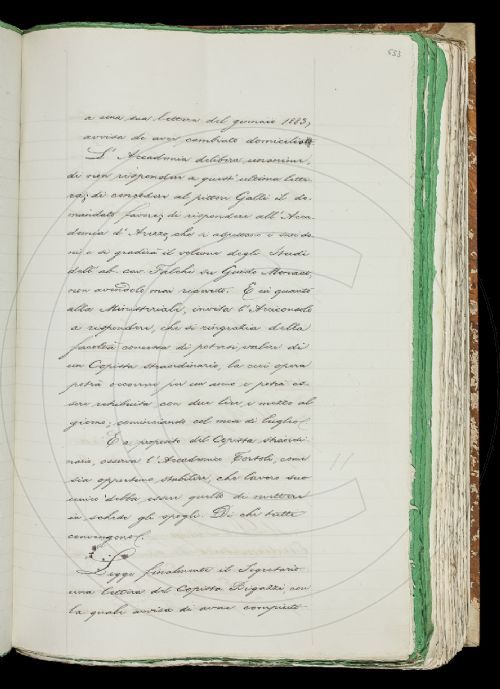 653
a una sua lettera del gennaio 1883,
avvisa di aver cambiato domicilio.
L'Accademia delibera unanime,
di non rispondere a quest'ultima lette-
ra; di concedere al pittore Galli il do-
mandato favore; di rispondere all'Acca-
demia d'Arezzo, che si aspettano i suoi do-
ni, e si gradirà il volume degli Studi
dell' cav. Falchi su Guido Monaco,
non avendolo mai ricevuto. E in quanto
alla Ministeriale, invita l'Arciconsolo
a rispondere, che si ringrazia della
facoltà concessa di potersi valere di
un Copista straordinario, la cui opera
potrà occorrere per un anno e potrà es-
sere retribuita con due lire e mezzo al
giorno, cominciando col mese di luglio.
E a proposito del Copista straordi-
nario, osserva l'Accademico Tortoli, come
sia opportuno stabilire, che lavoro suo
unico debba essere quello di mettere
in schede gli spogli. Di che tutti
convengono.
Legge finalmente il Segretario
una lettera del Copista Bigazzi, con
la quale avvisa di avere compiuto